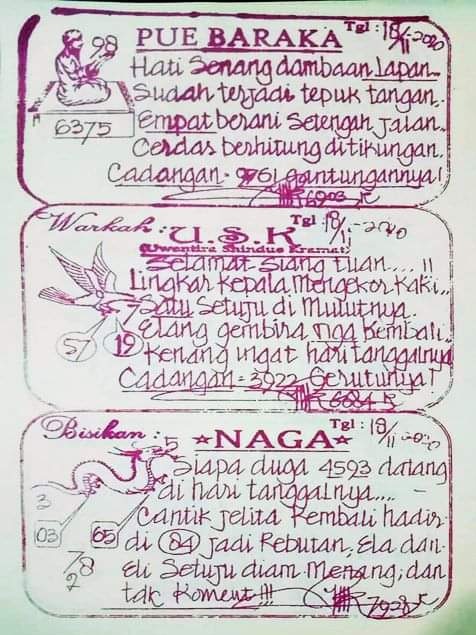 PUE BARAKA Tgl : 18/11-2020
98
Hati Senang dambaan Lapan..
Sudah terjadi tepuk tangan..
6375
Empat berani Setengah Jalan..
Cerdas berhitung ditikungan.
Cadangan = 9761 Gantungannya!
6903
Warkah : U.S.K Tgl : 18/11-2020
(Uwentira Shindue Kramat)
Selamat Siang tuan.... !!
Lingkar Kepala Mengekor Kaki..
Satu Setuju di Mulutnya.
57 19
Elang gembira nga Kembali..
Kenang ingat hari tanggalnya
Cadangan = 3922 Gerutunya!
6684
Bisikan : NAGA Tgl : 18/11-2020
5
Siapa duga 4593 datang
di hari tanggalnya....
3
03 65
Cantik jelita Kembali hadir
di 84 jadi Rebutan, Ela dan
78
2
Eli Setuju diam Menang, dan
tak Koment !!!
7928